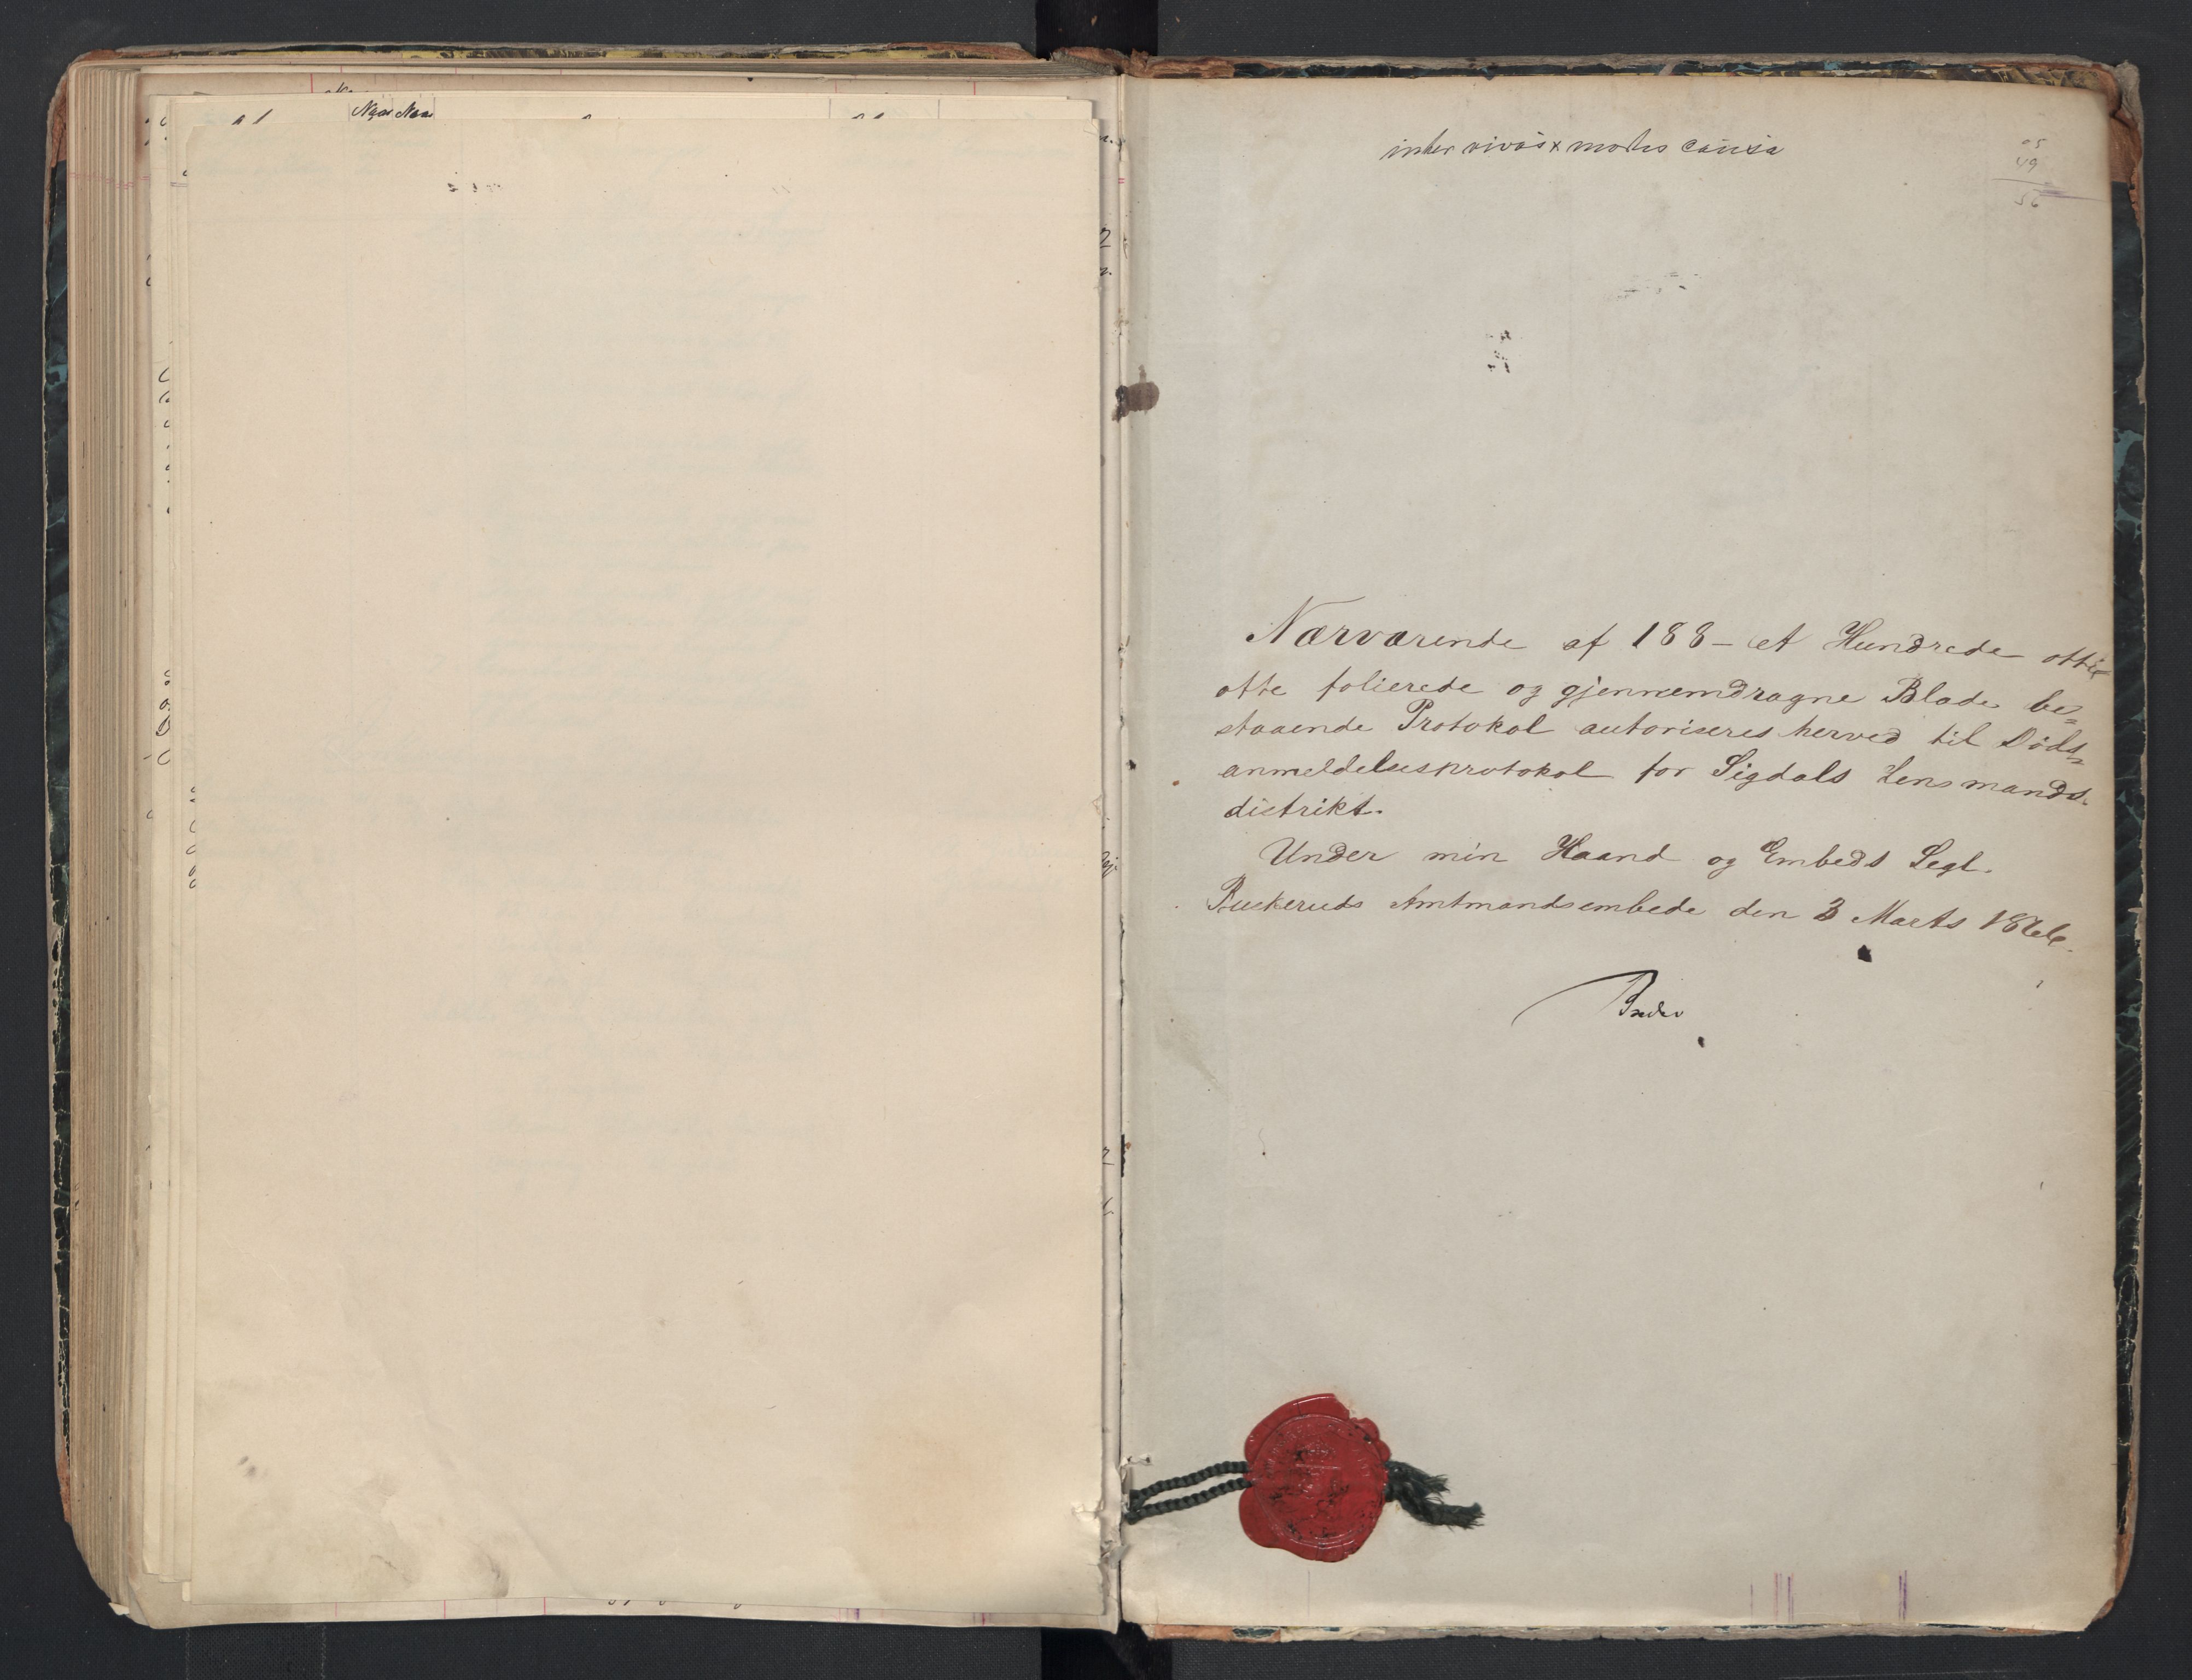 Ngar Naar
inter vivos x mortis causa
05
49
56
Nærværende af 188 - et Hundrede ottie
otte folierede og gjennemdragne Blade be=
staaende Protokol autoriseres herved til Døds=
anmeldelsesprotokol for Sigdals Lensmands-
distrikt.
Under min Haand og Embeds Segl.
Buskeruds Amtmandsembede den 3 Marts 1866.